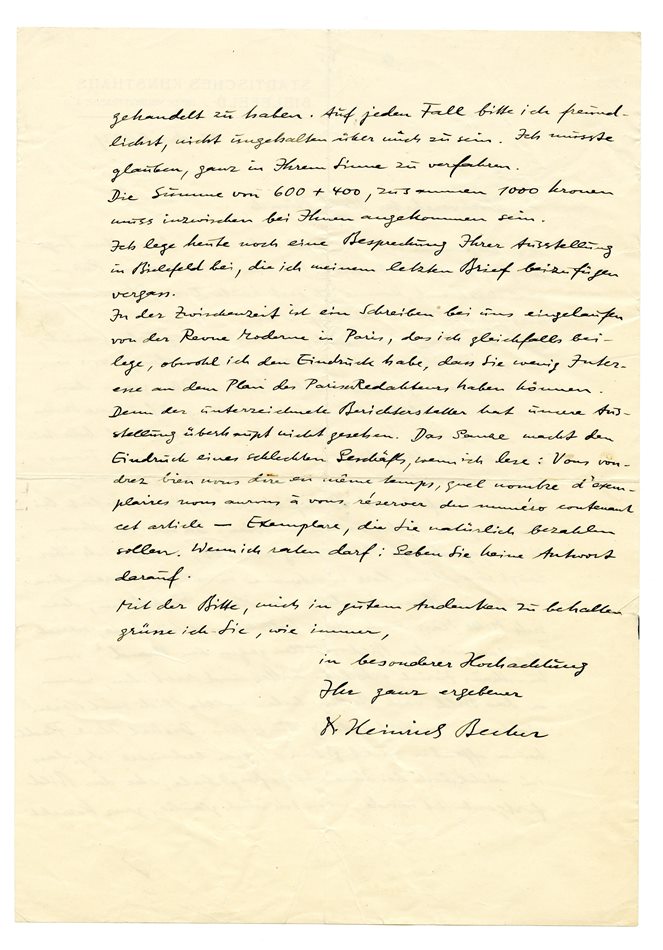 gehandelt zu haben. Auf jeden Fall bitte ich freund-
lichst, nicht ungehalten über mich zu sein. Ich musste
glauben, ganz in Ihrem Sinne zu verfahren.
Die Summe von 600 + 400, zusammen 1000 Kronen
muss inzwischen bei Ihnen angekommen sein.
Ich lege heute noch eine Besprechung Ihrer Ausstellung
in Bielefeld bei, die ich meinem letzten Brief beizufügen
vergass.
In der Zwischenzeit ist ein Schreiben bei uns eingelaufen
von der Revue Moderne in Paris, das ich gleichfalls bei-
lege, obwohl ich den Eindruck habe, dass Sie wenig Inter-
esse an dem Plan des Pariser Redakteurs haben können.
Denn der unterzeichnete Berichtersteller hat unsere Aus-
stellung überhaupt nicht gesehen. Das Ganze macht den
Eindruck eines schlechten Geschäfts, wenn ich lese: Vous vou-
drez bien nous dire en même temps, quel nombre d'exem-
plaires nous aurons à vous réserver du numéro contenant
cet article — Exemplare, die Sie natürlich bezahlen
sollen. Wenn ich raten darf: Geben Sie keine Antwort
darauf.
Mit der Bitte, mich in gutem Andenken zu behalten
grüsse ich Sie, wie immer,
in besonderer Hochachtung
Ihr ganz ergebener
Dr Heinrich Becker
STÄDTISCHES KUNSTHAUS